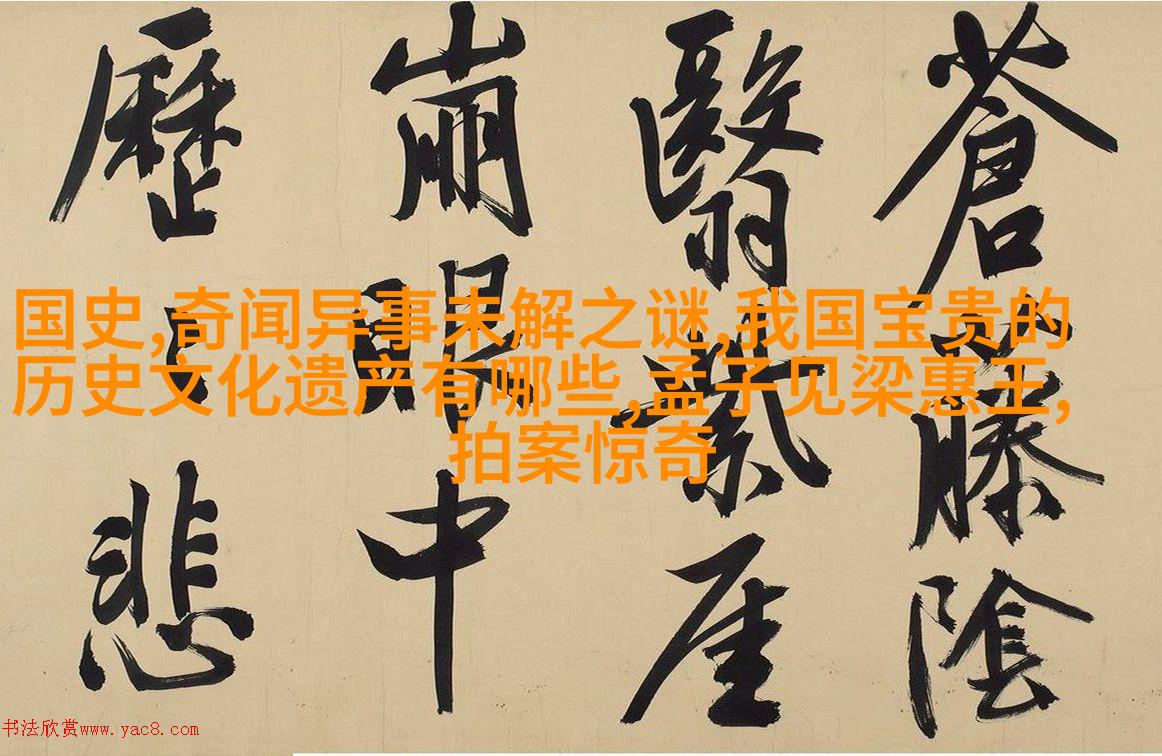 蒼藤陰
翳厓
崩中
歷悲
国史,奇闻异事未解之谜,我国宝贵的
历史文化遗产有哪些,孟子见梁惠王,
拍案惊奇
书法欣赏www.yac8.com